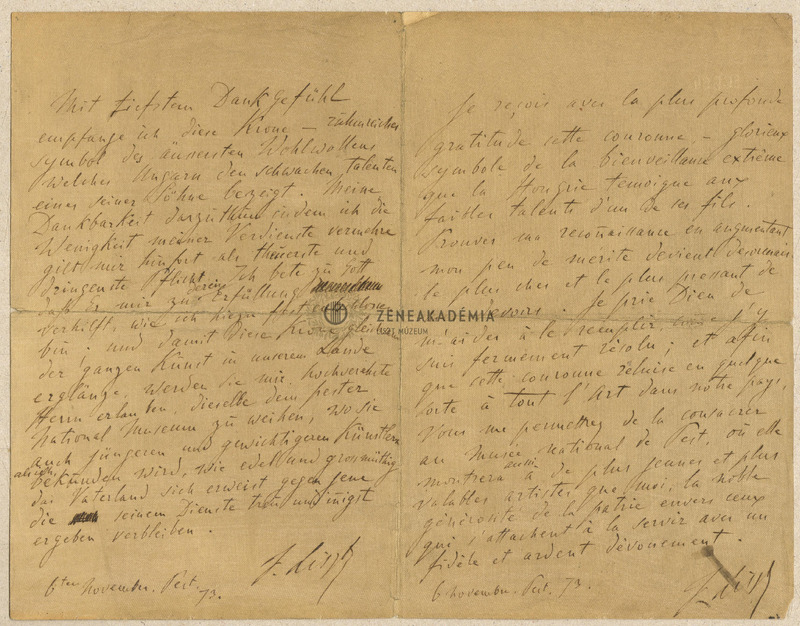 Mit tiefstem Dankgefühl
empfange ich diese Krone – ruhmreiches
symbol des äussersten Wohlwollens
welches Ungarn den schwachen talenten
eines seiner Söhne bezeigt. Meine
Dankbarkeit darzuthun indem ich die
Wenigkeit meiner Verdienste vermehre
gilt mir hinfort als theuerste und
dringenste Pflicht. Ich bete zu Gott
daß Er mir zu deren Erfüllung
verhilft, wie ich hiezu fest entschlossen
bin; und damit diese Krone gleich
der ganzen Kunst in unserem Lande
erglänze, werden Sie mir, hochverehrte
Herrn erlauben, dieselbe dem Pester
National Museum zu weihen, wo sie
auch jüngeren und gewichtigeren Künstlern
als ich, bekunden wird, wie edel und grossmüthig
das Vaterland sich erweist gegen jene
die seinem Dienste treu und innigst
ergeben verbleiben.
F. Liszt
6ten November. Pest. 73.
Je reçois avec la plus profonde
gratitude cette couronne – glorieux
symbole de la bienveillance extrême
que la Hongrie témoigne aux
faibles talents d'un de ses fils.
Prouver ma reconnaissance en augmentant
mon peu de mérite devient désormais
le plus cher et le plus pressant de
devoirs. Je prie Dieu de
m'aider à le remplir, comme j'y
suis fermement résolu; et afin
que cette couronne reluise en quelque
sorte à tout l'Art dans notre pays,
Vous me permettrez de la consacrer
au musée National de Pest, où elle
montrera aussi à de plus jeunes et plus
valables artistes que moi, la noble
générosité de la patrie envers ceux
qui s'attachent à la servir avec un
fidèle et ardent dévouement.
F. Liszt
6 novembre. Pest. 73.
ZENEAKADÉMIA
LISZT MÚZEUM